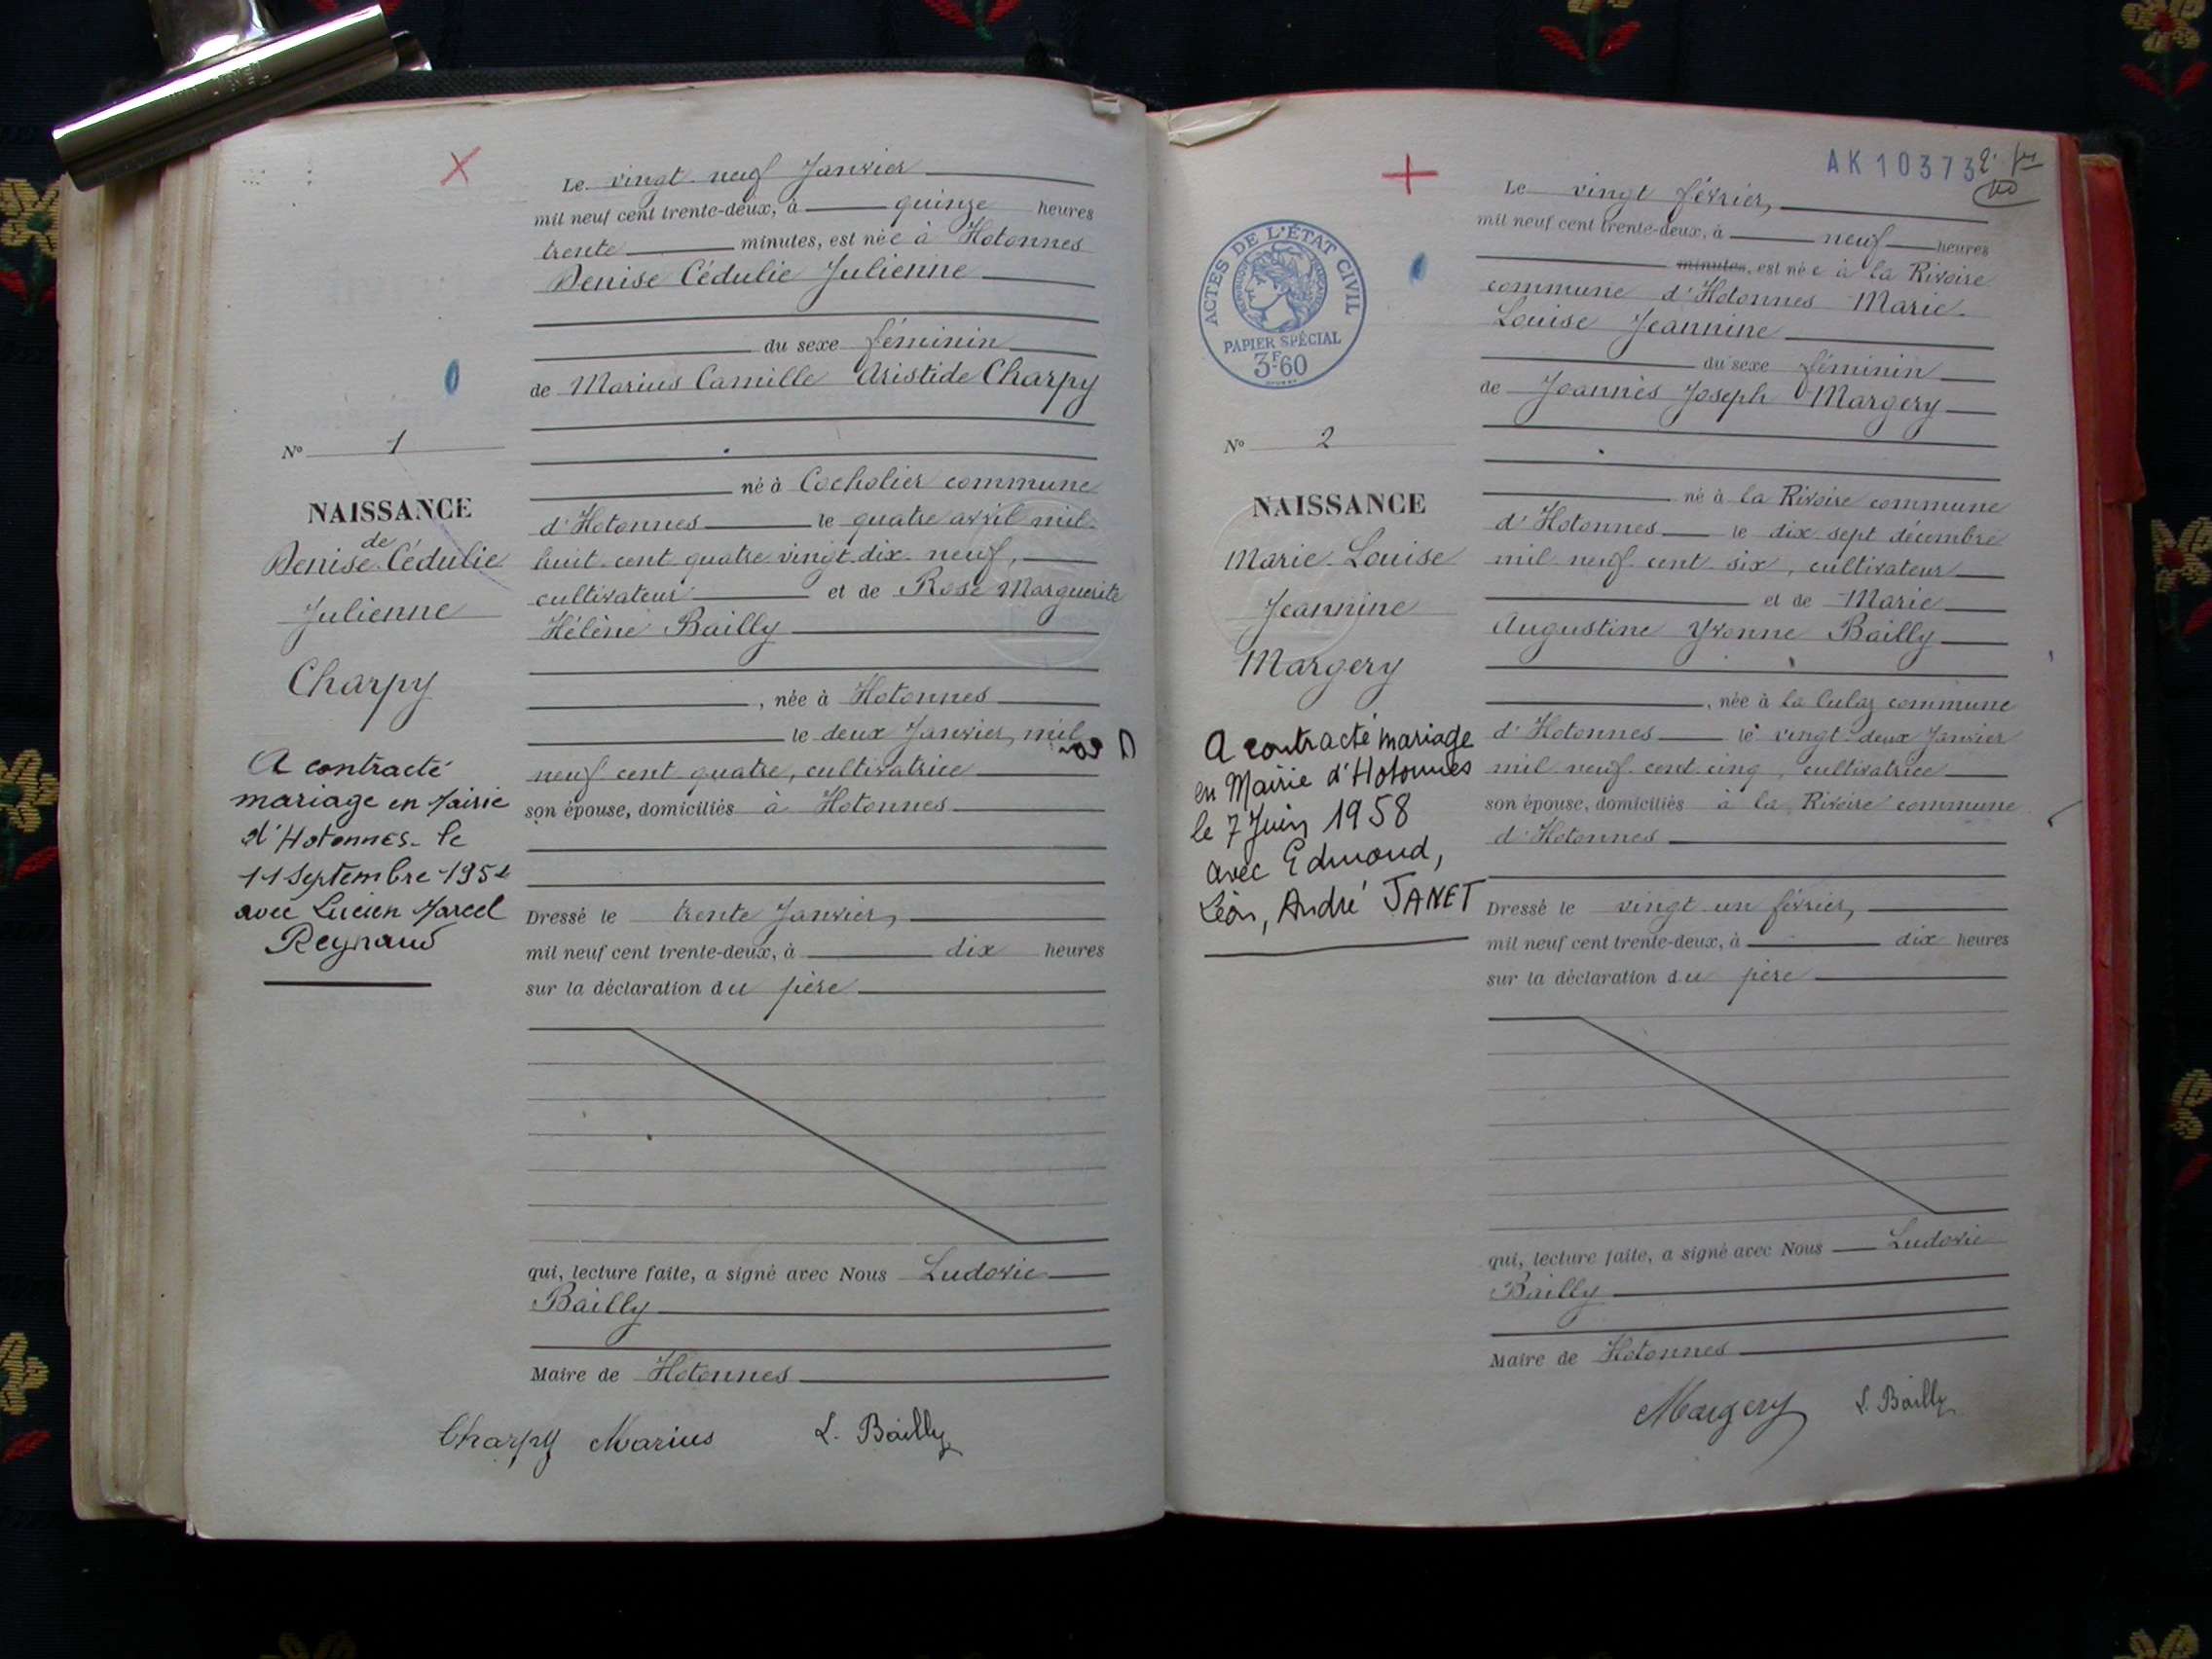 Le vingt neuf Janvier
mil neuf cent trente-deux, à quinze heures
trente minutes, est née à Hotonnes
Denise Cédulie Julienne
du sexe féminin
de Marius Camille Aristide Charpy
né à Cocholier commune
d'Hotonnes le quatre avril mil
huit cent quatre vingt dix neuf,
cultivateur et de Rose Marguerite
Hélène Bailly
, née à Hotonnes
le deux Janvier, mil
neuf cent quatre, cultivatrice
son épouse, domiciliés à Hotonnes
Dressé le trente Janvier,
mil neuf cent trente-deux, à dix heures
sur la déclaration du père
qui, lecture faite, a signé avec Nous Ludovic
Bailly
Maire de Hotonnes
Charpy Marius L. Bailly
No 1
NAISSANCE
de
Denise Cédulie
Julienne
Charpy
A contracté
mariage en Mairie
d'Hotonnes le
11 Septembre
avec Lucien Marcel
Reynaud
AK 103732
ACTES DE L'ÉTAT CIVIL
PAPIER SPÉCIAL
3F60
Le vingt février,
mil neuf cent trente-deux, à neuf heures
minutes, est née à la Rivoire
commune d'Hotonnes Marie
Louise Jeannine
du sexe féminin
de Joannès Joseph Margery
né à la Rivoire commune
d'Hotonnes le dix sept décembre
mil neuf cent six, cultivateur
et de Marie
Augustine Yvonne Bailly
, née à la Culaz commune
d'Hotonnes le vingt deux Janvier
mil neuf cent cinq, cultivatrice
son épouse, domiciliés à la Rivoire commune
d'Hotonnes
Dressé le vingt un février,
mil neuf cent trente-deux, à dix heures
sur la déclaration du père
qui, lecture faite, a signé avec Nous Ludovic
Bailly
Maire de Hotonnes
Margery L. Bailly
No 2
NAISSANCE
Marie Louise
Jeannine
Margery
A contracté mariage
en Mairie d'Hotonnes
le 7 Juin 1958
avec Edmond,
Léon, André JANET